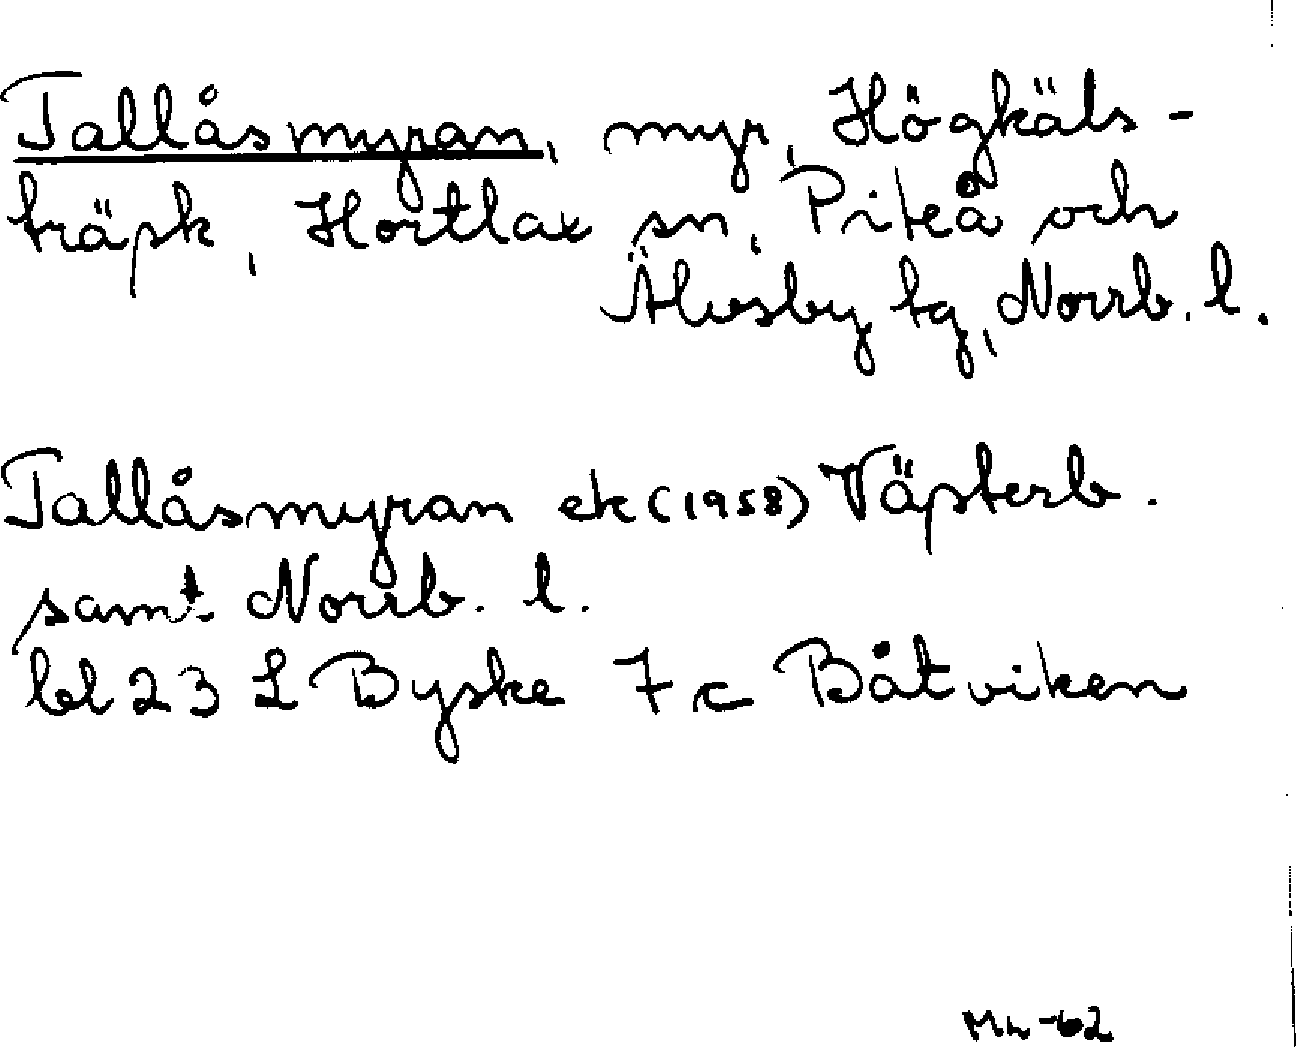 Tallåsmyran, myr, Högkäls-
träsk, Hortlax sn, Piteå och
Älvsby tg, Norrb. l.
Tallåsmyran ek (1958) Västerb.
samt Norrb. l.
bl 23 L Byske 7 c Båtviken
-62